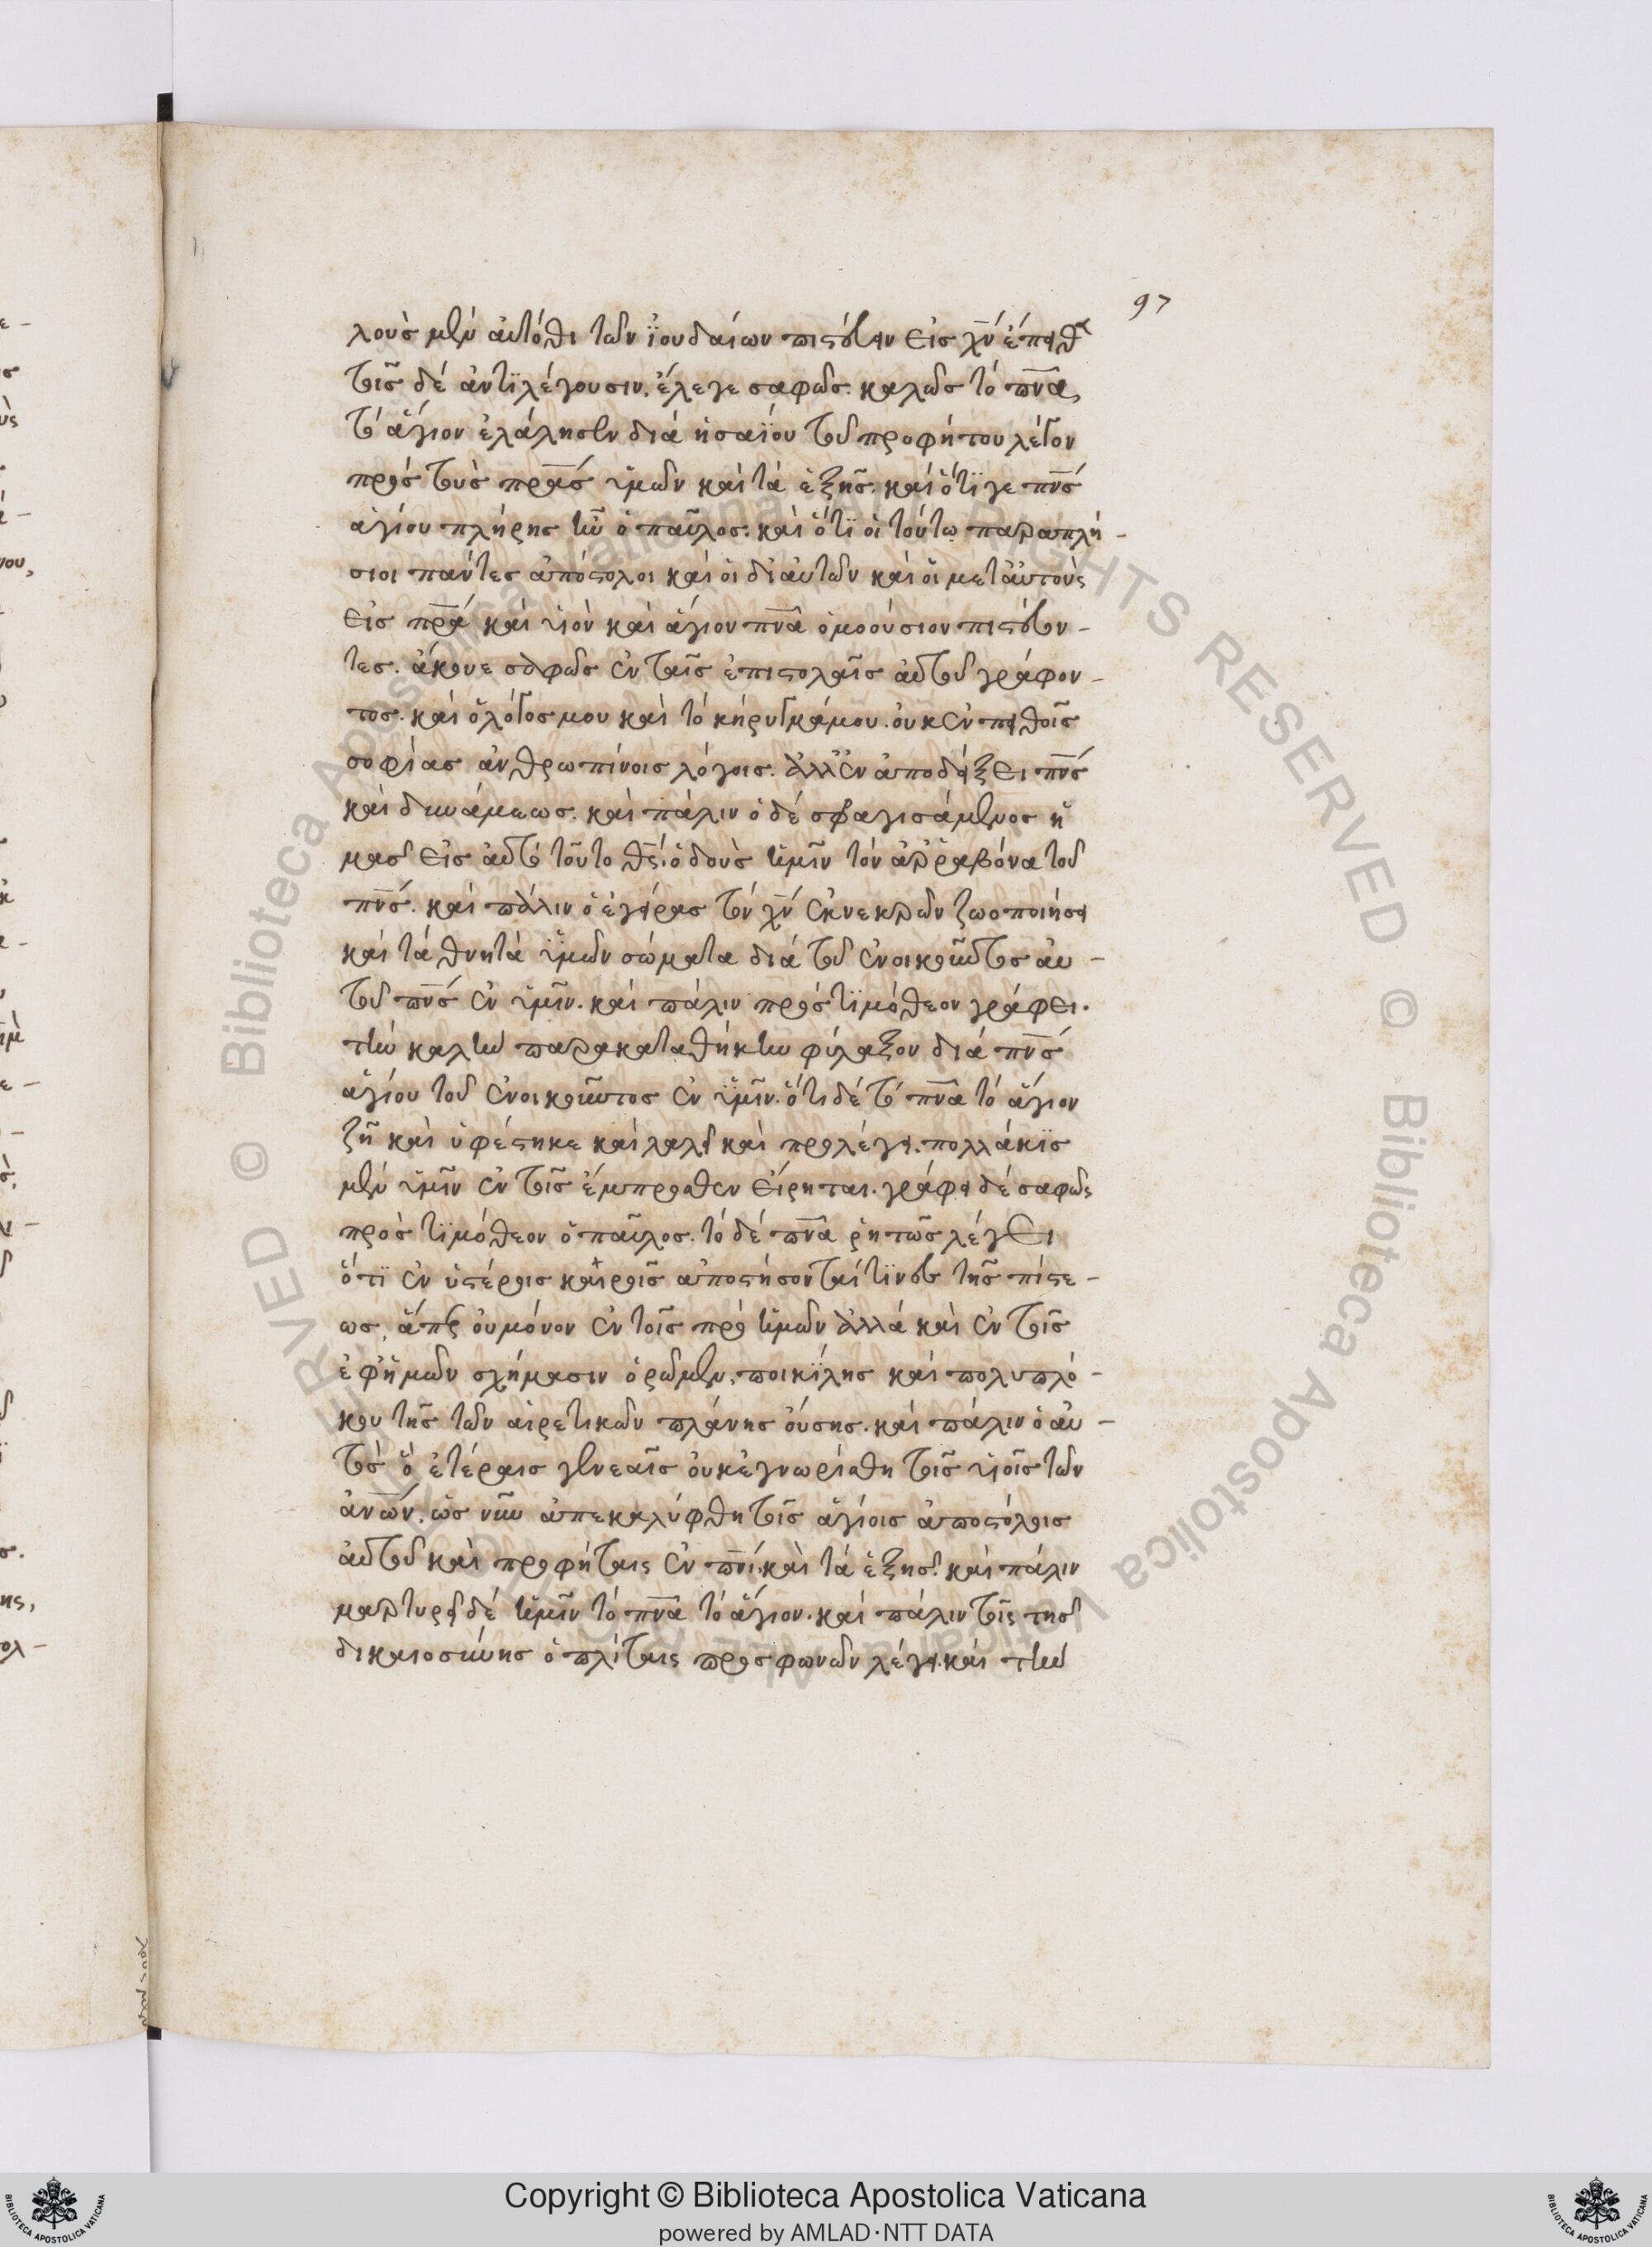 97
λοὺς μὲν αὐτόθι τῶν ἰουδαίων πιστεύειν εἰς χν̅ ἔπειθε
τοῖς δὲ ἀντιλέγουσιν. ἔλεγε σαφῶς. καλῶς τὸ πνα̅
τὸ ἅγιον ἐλάλησεν διὰ ἡσαΐου τοῦ προφήτου λέγον
πρὸς τοὺς πρασ̅ ὑμῶν καὶ τὰ ἑξῆς. καὶ ὅτι γε πνσ̅
ἁγίου πλήρης ἦν ὁ παῦλος. καὶ ὅτι οἱ τούτω παραπλή-
σιοι πάντες ἀπόστολοι καὶ οἱ δι αὐτῶν καὶ οἱ μετ αὐτοὺς
εἰς πρα̅ καὶ υἱὸν καὶ ἅγιον πνα̅ ὁμοούσιον πιστεύον-
τες. ἄκουε σαφῶς ἐν ταῖς ἐπιστολαῖς αὐτοῦ γράφον-
τος. καὶ ὁ λόγος μου καὶ τὸ κήρυγμά μου. οὐκ ἐν πειθοῖς
σοφίας ἀνθρωπίνοις λόγοις. ἀλλ ἐν ἀποδείξει πνσ̅
καὶ δυνάμεως. καὶ πάλιν ὁ δὲ σφραγισάμενος ἡ
μᾶς εἰς αὐτὸ τοῦτο θσ̅. ὁ δοὺς ἡμῖν τὸν ἀρραβόνα τοῦ
πνσ̅. καὶ πάλιν ὁ ἐγείρας τὸν χν̅ ἐκ νεκρῶν ζωοποιήσει
καὶ τὰ θνητὰ ὑμῶν σώματα διὰ τοῦ ἐνοικοῦντος αὐ-
τοῦ πνσ̅ ἐν ὑμῖν. καὶ πάλιν πρὸς τιμόθεον γράφει.
τὴν καλὴν παρακαταθήκην φύλαξον διὰ πνσ̅
ἁγίου τοῦ ἐνοικοῦντος ἐν ὑμῖν. ὅτι δὲ τὸ πνα̅ τὸ ἅγιον
ζῆ καὶ ὑφέστηκε καὶ λαλεῖ καὶ προλέγει. πολλάκις
μὲν ὑμῖν ἐν τοῖς ἔμπροσθεν εἴρηται. γράφει δὲ σαφῶς
πρὸς τιμόθεον ὁ παῦλος. τὸ δὲ πνα̅ ῥητῶς λέγει
ὅτι ἐν ὑστέροις καιροῖς ἀποστήσονταί τινες τῆς πίστε-
ως, ἅπερ οὐ μόνον ἐν τοῖς πρὸ ἡμῶν ἀλλὰ καὶ ἐν τοῖς
ἐφ ἡμῶν σχήμασιν ὁρῶμεν, ποικίλης καὶ πολυπλό-
κου τῆς τῶν αἱρετικῶν πλάνης οὔσης. καὶ πάλιν ὁ αὐ-
τὸς ὃ ἑτέραις γενεαῖς οὐκ ἐγνωρίσθη τοῖς υἱοῖς τῶν
ἀνων̅. ὡς νῦν ἀπεκαλύφθη τοῖς ἁγίοις ἀποστόλοις
αὐτοῦ καὶ προφήταις ἐν πνι̅. καὶ τὰ ἑξῆς. καὶ πάλιν
μαρτυρεῖ δὲ ἡμῖν τὸ πνα̅ τὸ ἅγιον. καὶ πάλιν τοῖς τῆς
δικαιοσύνης ὁπλίταις προσφωνῶν λέγει. καὶ τὴν
Copyright © Biblioteca Apostolica Vaticana
powered by AMLAD·NTT DATA